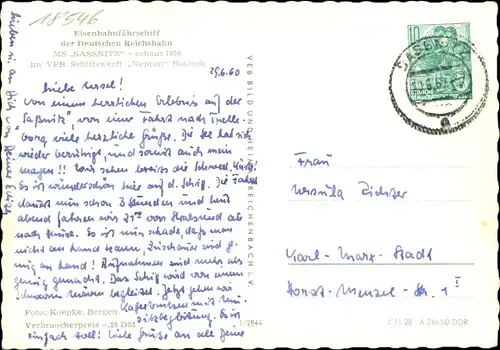 18546
Eisenbahnfährschiff
der Deutschen Reichsbahn
MS „SASSNITZ" – erbaut 1959
im VEB Schiffswerft „Neptun" Rostock
29.6.60
Liebe Ursel!
Von einem herrlichen Erlebnis auf der
„Saßnitz", von einer Fahrt nach Trelle-
borg viele herzliche Grüße. Die See hat sich
wieder beruhigt, und somit auch mein
Magen!! Wir sehen bereits die schwed. Küste!
Es ist wunderschön hier auf d. Schiff. Die Fahrt
dauert nun schon 3 Stunden und heut
abend fahren wir 21 von Stralsund ab
nach Hause. Es ist nur schade, daß man
nicht an Land kann, Zuschauer sind
genug an Land! Aufnahmen sind mehr als
genug gemacht. Das Schiff wird von einem
Schwarm Möwen begleitet. Jetzt gehen wir
Kaffeetrinken mit
Es ist
einfach toll! Viele Grüße an alle Deine
Lieben u. an Dich von Deiner
Foto: Koepke, Bergen
Verbraucherpreis –,25 DM
1/2844
VEB BILD UND HEIMAT REICHENBACH I. V.
10
DEUTSCHE
SASSNITZ
a
Frau
Ursula Richter
Karl-Marx-Stadt
Horst-Menzel-Str. 1 I
V 11 28 A 246/60 DDR